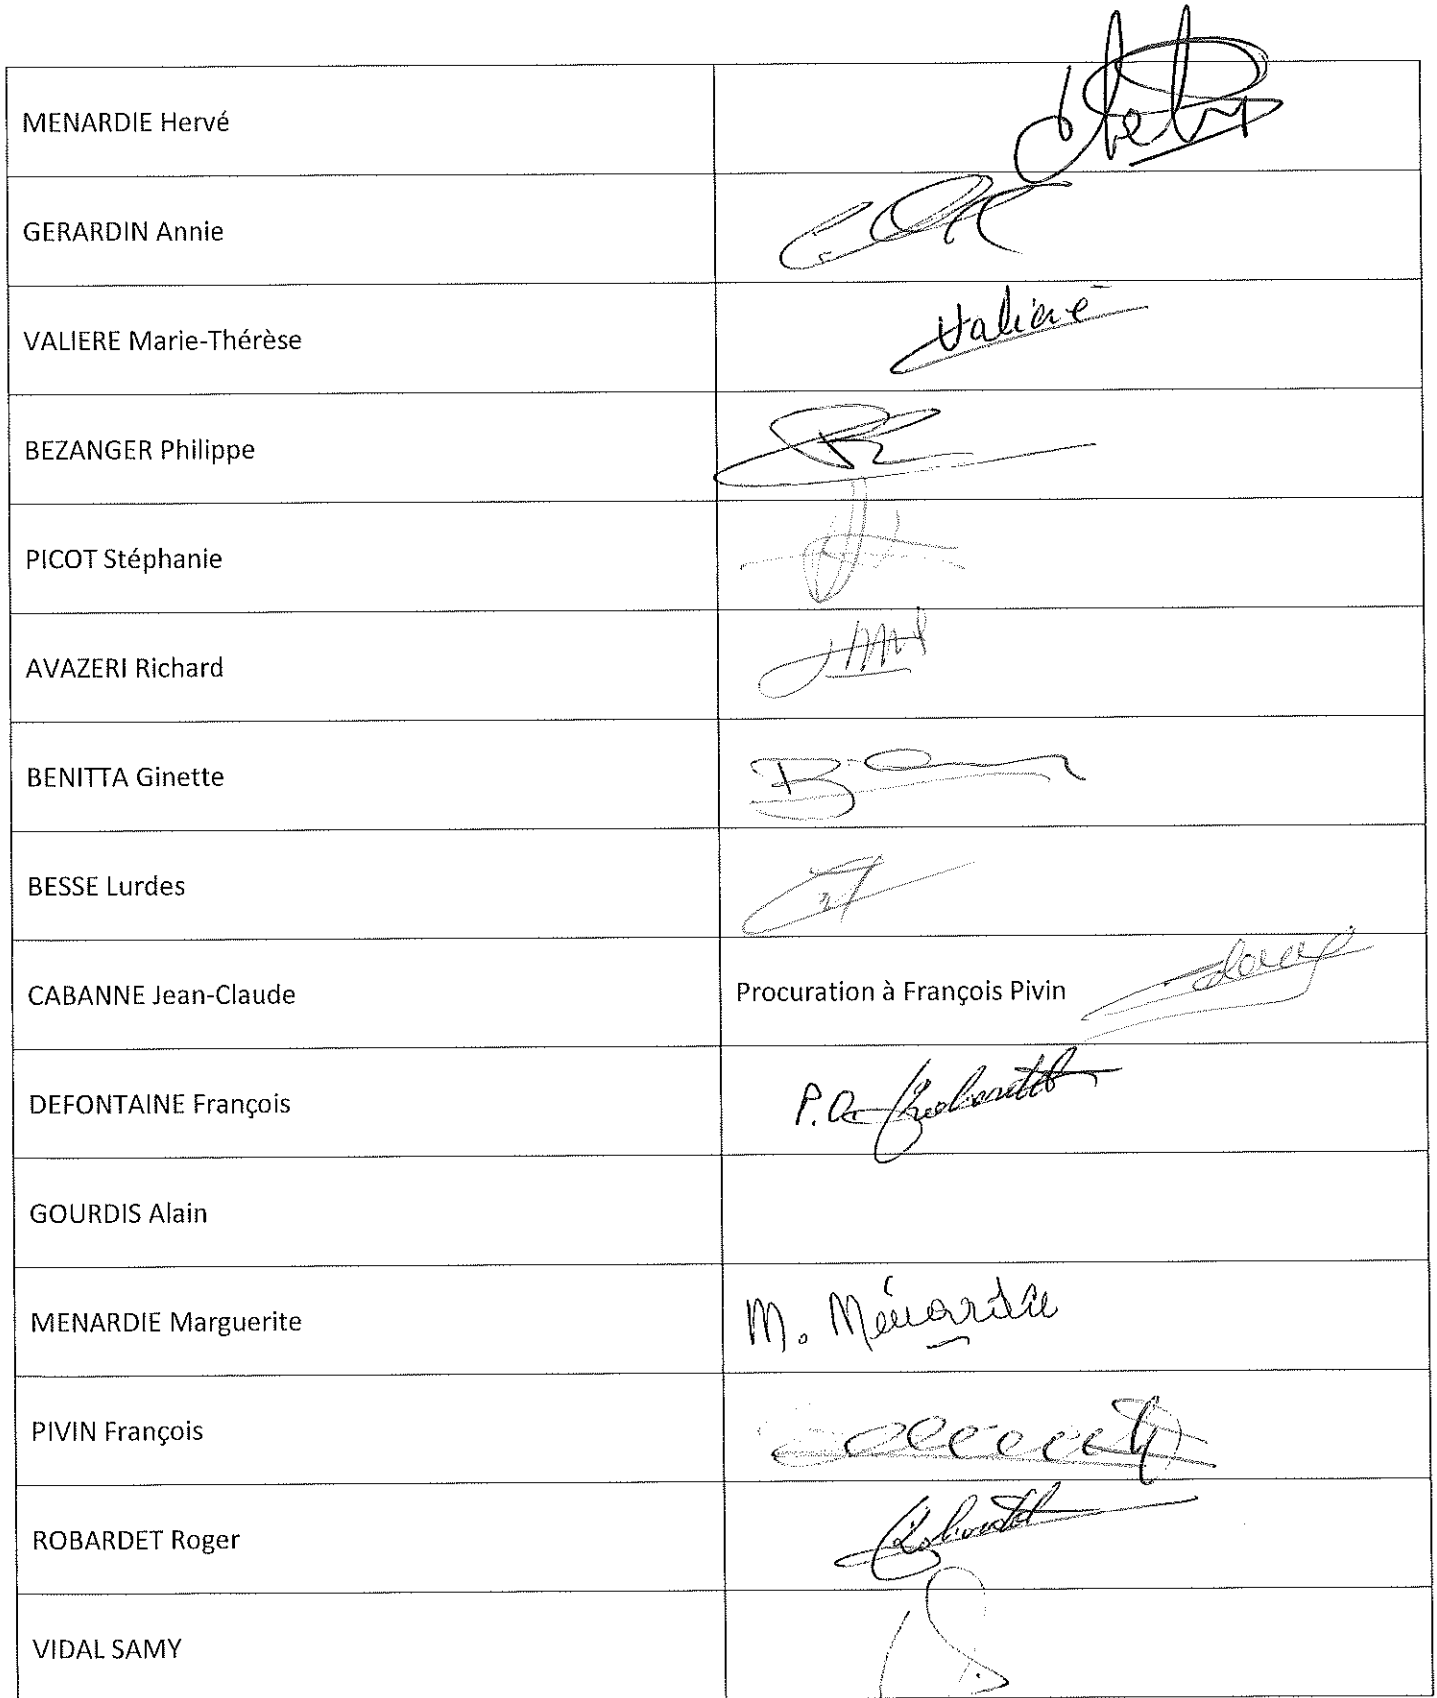 MENARDIE Hervé
GERARDIN Annie
VALIERE Marie-Thérèse
Valiere
BEZANGER Philippe
PICOT Stéphanie
AVAZERI Richard
BENITTA Ginette
BESSE Lurdes
CABANNE Jean-Claude
Procuration à François Pivin
DEFONTAINE François
P.O. Robardet
GOURDIS Alain
MENARDIE Marguerite
M. Ménardie
PIVIN François
ROBARDET Roger
Robardet
VIDAL SAMY